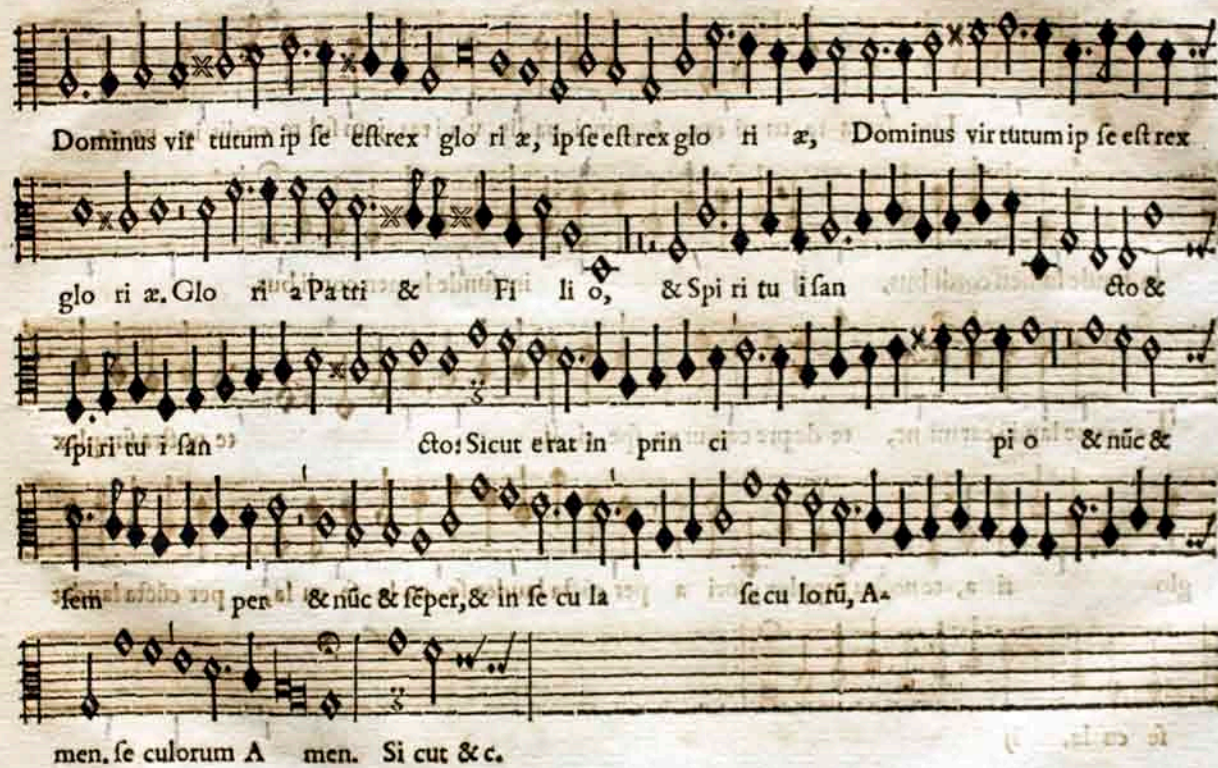 Dominus vir tutum ip se est rex glo ri æ, ip se est rex glo ri æ, Dominus vir tutum ip se est rex
glo ri æ. Glo ri a Pa tri & Fi li o, & Spi ri tu i san cto &
spi ri tu i san cto: Sicut erat in prin ci pi o & nũc &
sem per & nũc & sẽper, & in se cu la se cu lo rũ, A-
men. se culorum A men. Si cut & c.